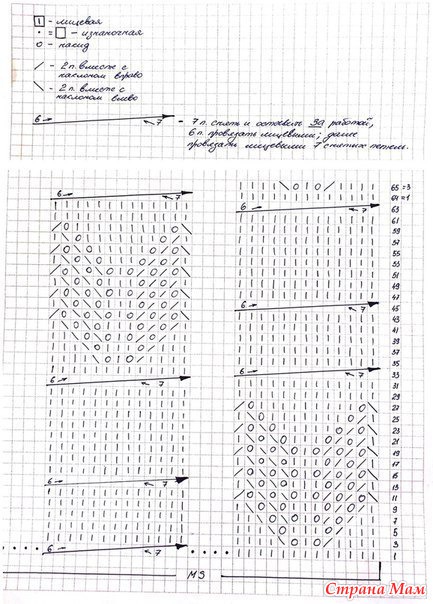 | - лицевая
• = □ - изнаночная
O - накид
/ - 2 п. вместе с
наклоном вправо
\ - 2 п. вместе с
наклоном влево
6 → ← 7 - 7 п. снять и оставить за работой,
6 п. провязать лицевыми; далее
провязать лицевыми 7 снятых петель.
65=3
64=1
6 → ← 7
6 → ← 7 63
61
59
57
55
53
51
49
47
6 → ← 7 45
43
41
39
37
35
6 → ← 7 33
6 → ← 7
31
29
27
25
23
21
19
17
15
13
11
6 → ← 7
9
7
5
3
6 → ← 7 1
МЗ
Страна Мам